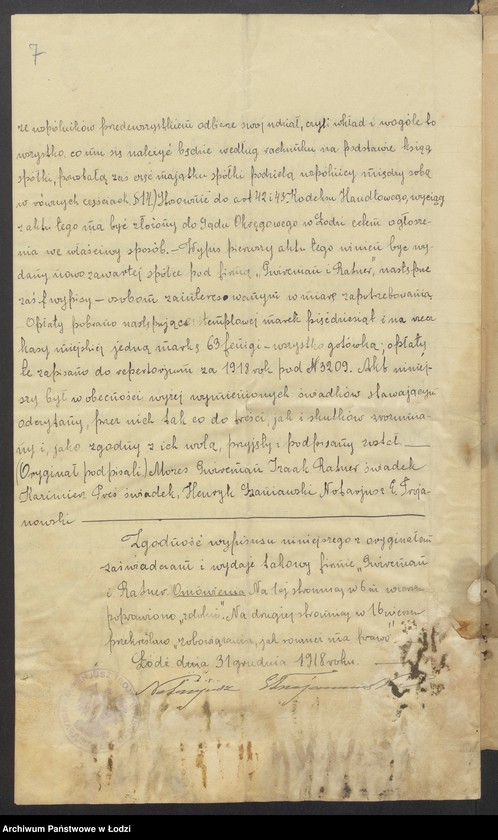 7
ze wspólników przedewszystkiem odbierze swój udział, czyli wkład i wogóle to
wszystko, co mu się należyć będzie według rachunku na podstawie ksiąg
spółki, pozostałą zaś część majątku spółki podzielą wspólnicy między sobą
w równych częściach. § 14) Stosownie do art 42 i 43 Kodeksu Handlowego, wyciąg
z aktu tego ma być złożony do Sądu Okręgowego w Łodzi celem ogłosze-
nia we właściwy sposób. – Wypis pierwszy aktu tego winien być wy-
dany nowozawartej spółce pod firmą „Gwircman i Ratner", następne
zaś wypisy – osobom zainteresowanym w miarę zapotrzebowania
Opłaty pobrano następujące: stemplowej marek pięćdziesiąt i na rzecz
kasy miejskiej jedną markę 63 fenigi – wszystko gotówką; opłaty
te zapisano do repertorjum za 1918 rok pod N 3209. Akt niniej-
szy był w obecności wyżej wymienionych świadków stawającym
odczytany, przez nich tak co do treści, jak i skutków zrozumia-
ny i, jako zgodny z ich wolą, przyjęty i podpisany został.
(Oryginał podpisali:) Mozes Gwircman Izaak Ratner świadek
Kazimierz Pres świadek, Henryk Szaniawski Notarjusz E. Troja-
nowski
Zgodność wypisu niniejszego z oryginałem
zaświadczam i wydaję takowy firmie „Gwircman
i Ratner. Omówienia Na tej stronnicy w 6m wierszu
poprawiono Na drugiej stronnicy w 16 wierszu
przekreślono „zobowiązania, jak również ma prawo"
Łódź dnia 31 grudnia 1918 roku.
Notarjusz Trojanowski
Archiwum Państwowe w Łodzi